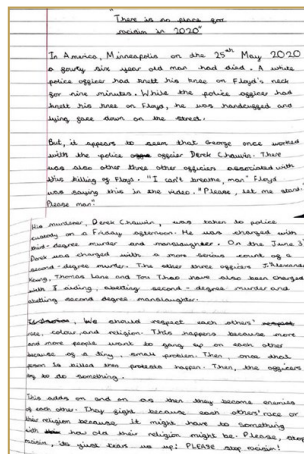 "There is no place for
racism in 2020"
In America, Minneapolis on the 25th May 2020
a fourty six year old man had died. A white
police officer had knelt his knee on Floyd's neck
for nine minutes. While the police officer had
knelt his knee on Floyd, he was handcuffed and
lying face down on the street.
But, it appears to seem that George once worked
with the police officer Derek Chauvin. There
was also other three other officers associated with
this killing of Floyd. "I can't breathe man" Floyd
was saying this in the video. "Please, let me stand.
Please man"
His murderer, Derek Chauvin, was taken to police
custody on a Friday afternoon. He was charged with
third-degree murder and manslaughter. On the June 3
Derek was charged with a more serious count of a
second-degree murder. The other three officers J. Alexander
Kueng, Thomas Lane and Tou Thao have also been charged
with aiding, abetting second-degree murder and
abetting second degree manslaughter.
We should respect each others'
race, colour and religion. This happens because more
and more people want to gang up on each other
because of a tiny, small problem. Then, once that
person is killed then protests happen. Then, the officers
try to do something.
This adds on and on as then they become enemies
of each other. They fight because each others' race or
their religion because it might have to something
with how old their religion might be. Please, stop
racism, its just tears us up! PLEASE stop racism!